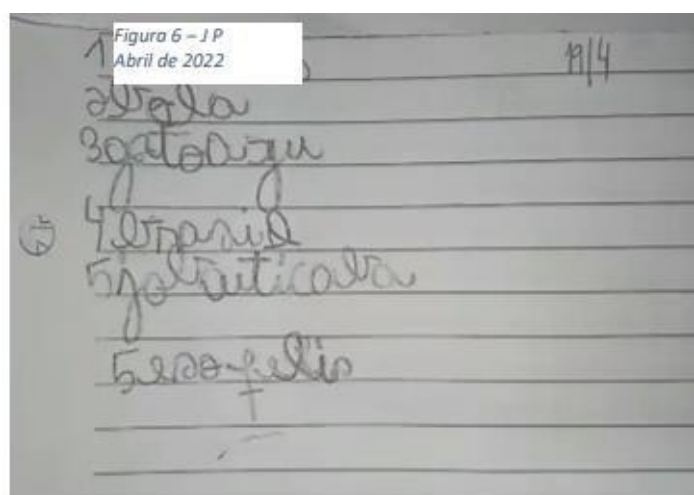 Figura 6 – J P
Abril de 2022
1 19/4
2bola
3gatoazu
4brasil
5jabuticaba
5esofelis